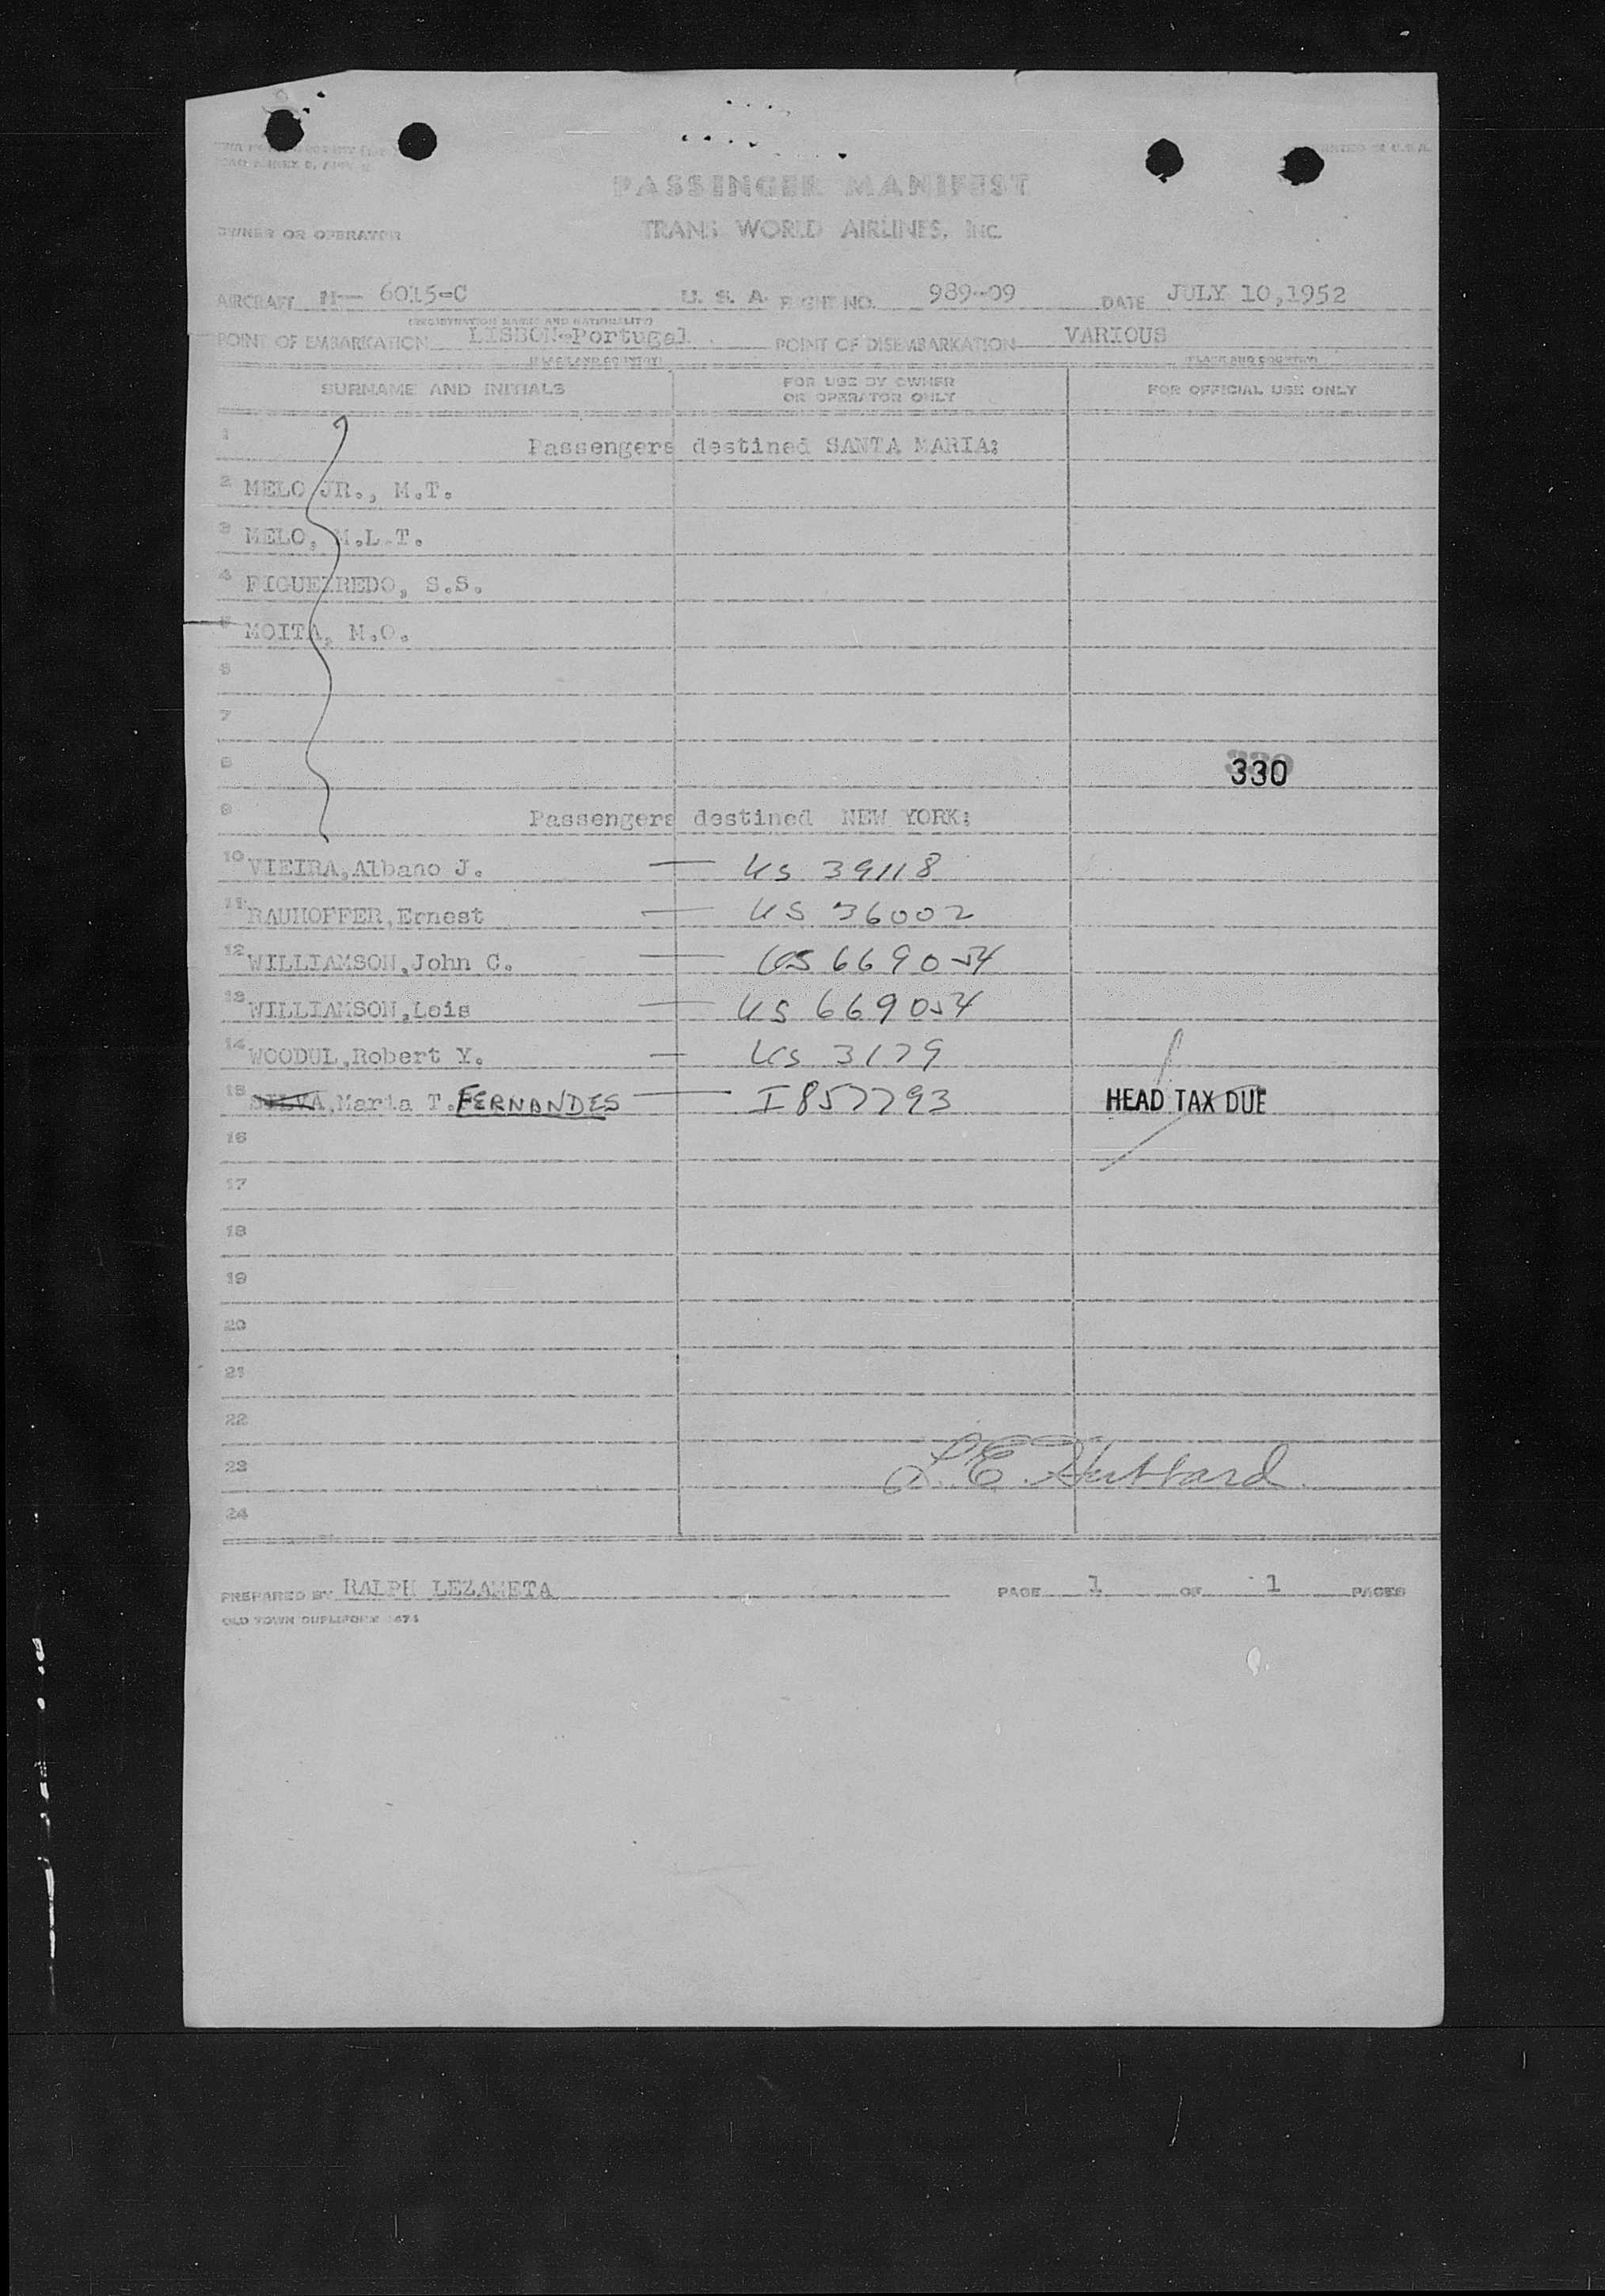 PRINTED IN U.S.A.
PASSENGER MANIFEST
OWNER OR OPERATOR TRANS WORLD AIRLINES, INC.
AIRCRAFT N— 6015-C U. S. A. FLIGHT NO. 989-09 DATE JULY 10,1952
(REGISTRATION MARKS AND NATIONALITY)
POINT OF EMBARKATION LISBON-Portugal POINT OF DISEMBARKATION VARIOUS
(PLACE AND COUNTRY) (PLACE AND COUNTRY)
SURNAME AND INITIALS FOR USE BY OWNER OR OPERATOR ONLY FOR OFFICIAL USE ONLY
1 Passengers destined SANTA MARIA:
2 MELO JR., M.T.
3 MELO, M.L.T.
4 FIGUEIREDO, S.S.
5 MOITA, M.O.
6
7
8 330
9 Passengers destined NEW YORK:
10 VIEIRA,Albano J. — US 39118
11 RAUHOFFER,Ernest — US 36002
12 WILLIAMSON,John C. — US 669054
13 WILLIAMSON,Lois — US 669054
14 WOODUL,Robert Y. — US 3179
15 SILVA,Maria T. FERNANDES — I857793 HEAD TAX DUE
16
17
18
19
20
21
22
23 L.E. Hubbard
24
PREPARED BY RALPH LEZAMETA PAGE 1 OF 1 PAGES
OLD TOWN DUPLIFORM 671